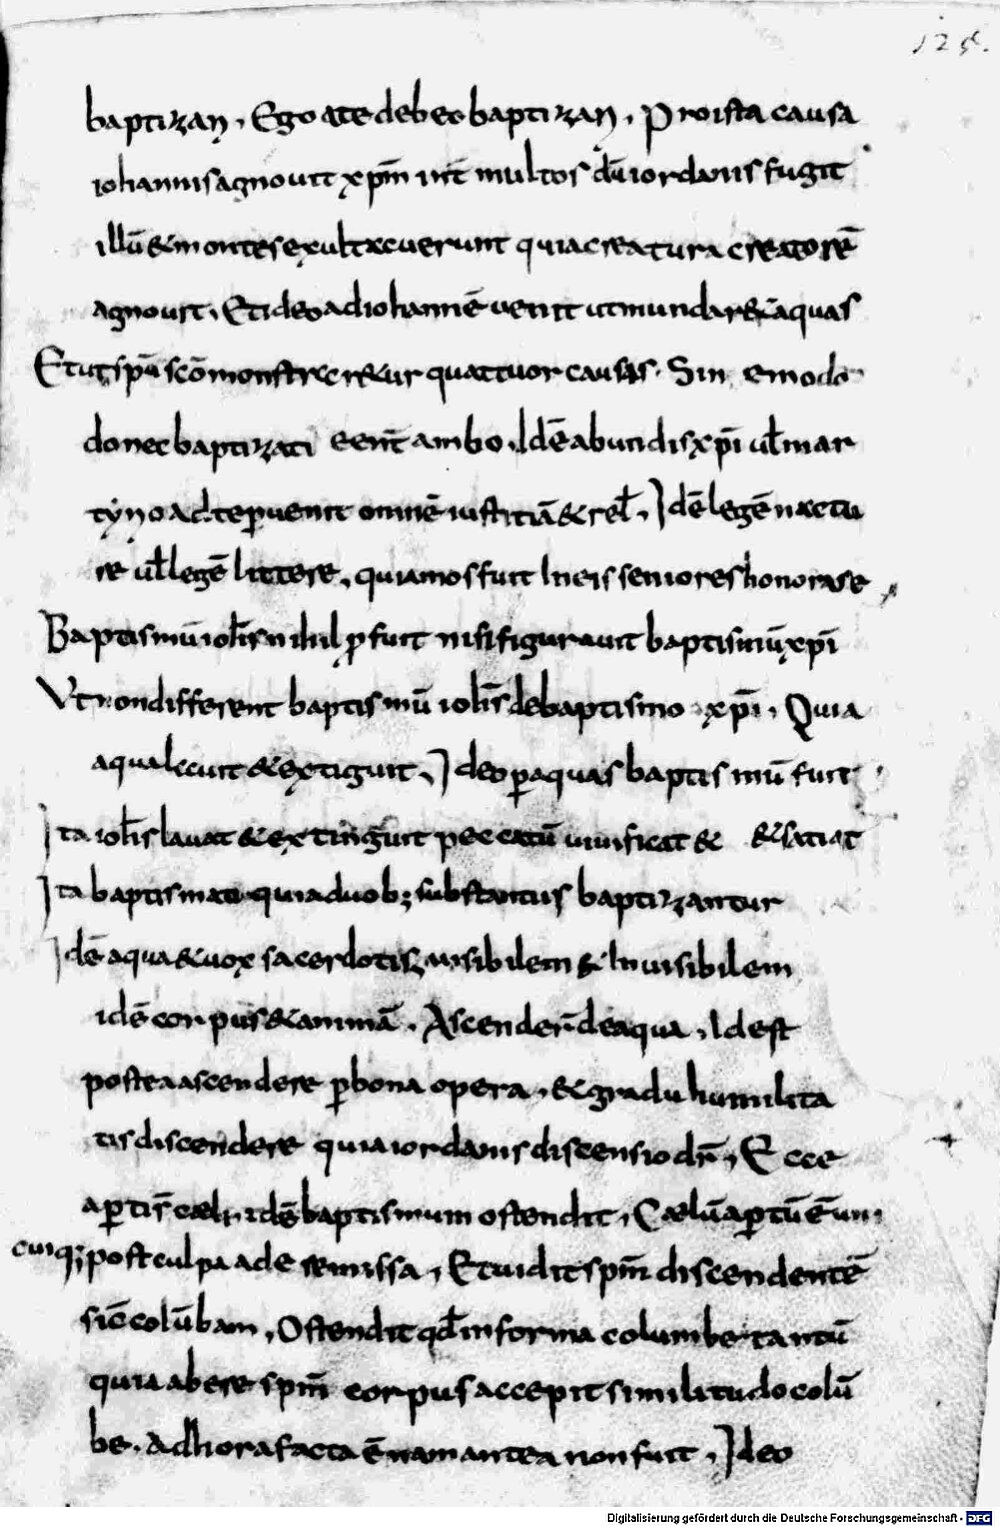 125.
baptizari, Ego ate debeo baptizari, Proista causa
iohannis agnouit xpm̄ int̄ multos dū iordanis fugit
illū & montes exultauerunt quia creatura creatorē
agnouit, Et ideo ad iohannē uenit ut mundar& aquas
Et ut spū scō monstrar&ur quattuor causas. Sine modo
donec baptizati eent̄ ambo, Idē abundis xpī ul̄ mar
tyrio ad te peruenit omnē iustitiā & rel̄, Idē legē nactu
re ul̄ legē littere, quia mos fuit Ineis seniores honorare
Baptismū ioh̄is nihil profuit nisi figurauit baptismū xpī
Ut non different baptismū ioh̄is debaptismo xpī, Quia
aqua lauit & extiguit, Ideo ꝑ aquas baptismū fuit
Ita ioh̄is lauat & extinguit peccatū uiuificat & & satiat
Ita baptismate quia duob; substantiis baptizantur
Idē aqua & uox sacerdotis, uisibilem & Inuisibilem
idē corpus & animā, Ascender̄ de aqua, Id est
postea ascendere ꝑ bona opera, & gradu humilita
tis discendere quia iordanis discensio dr̄, Ecce
aꝑti s̄ cæli, idē baptismum ostendit, Cælū aꝑtū ē uni
cuiq; post culpa ade remissa, Et uidit spm̄ discendentē
sic̄ colūbam, Ostendit qd̄ in forma columbe tantū
quia abere spm̄ corpus accepit similitudo colū
be. Ad hora facta ē nam antea non fuit, Ideo
Digitalisierung gefördert durch die Deutsche Forschungsgemeinschaft - DFG